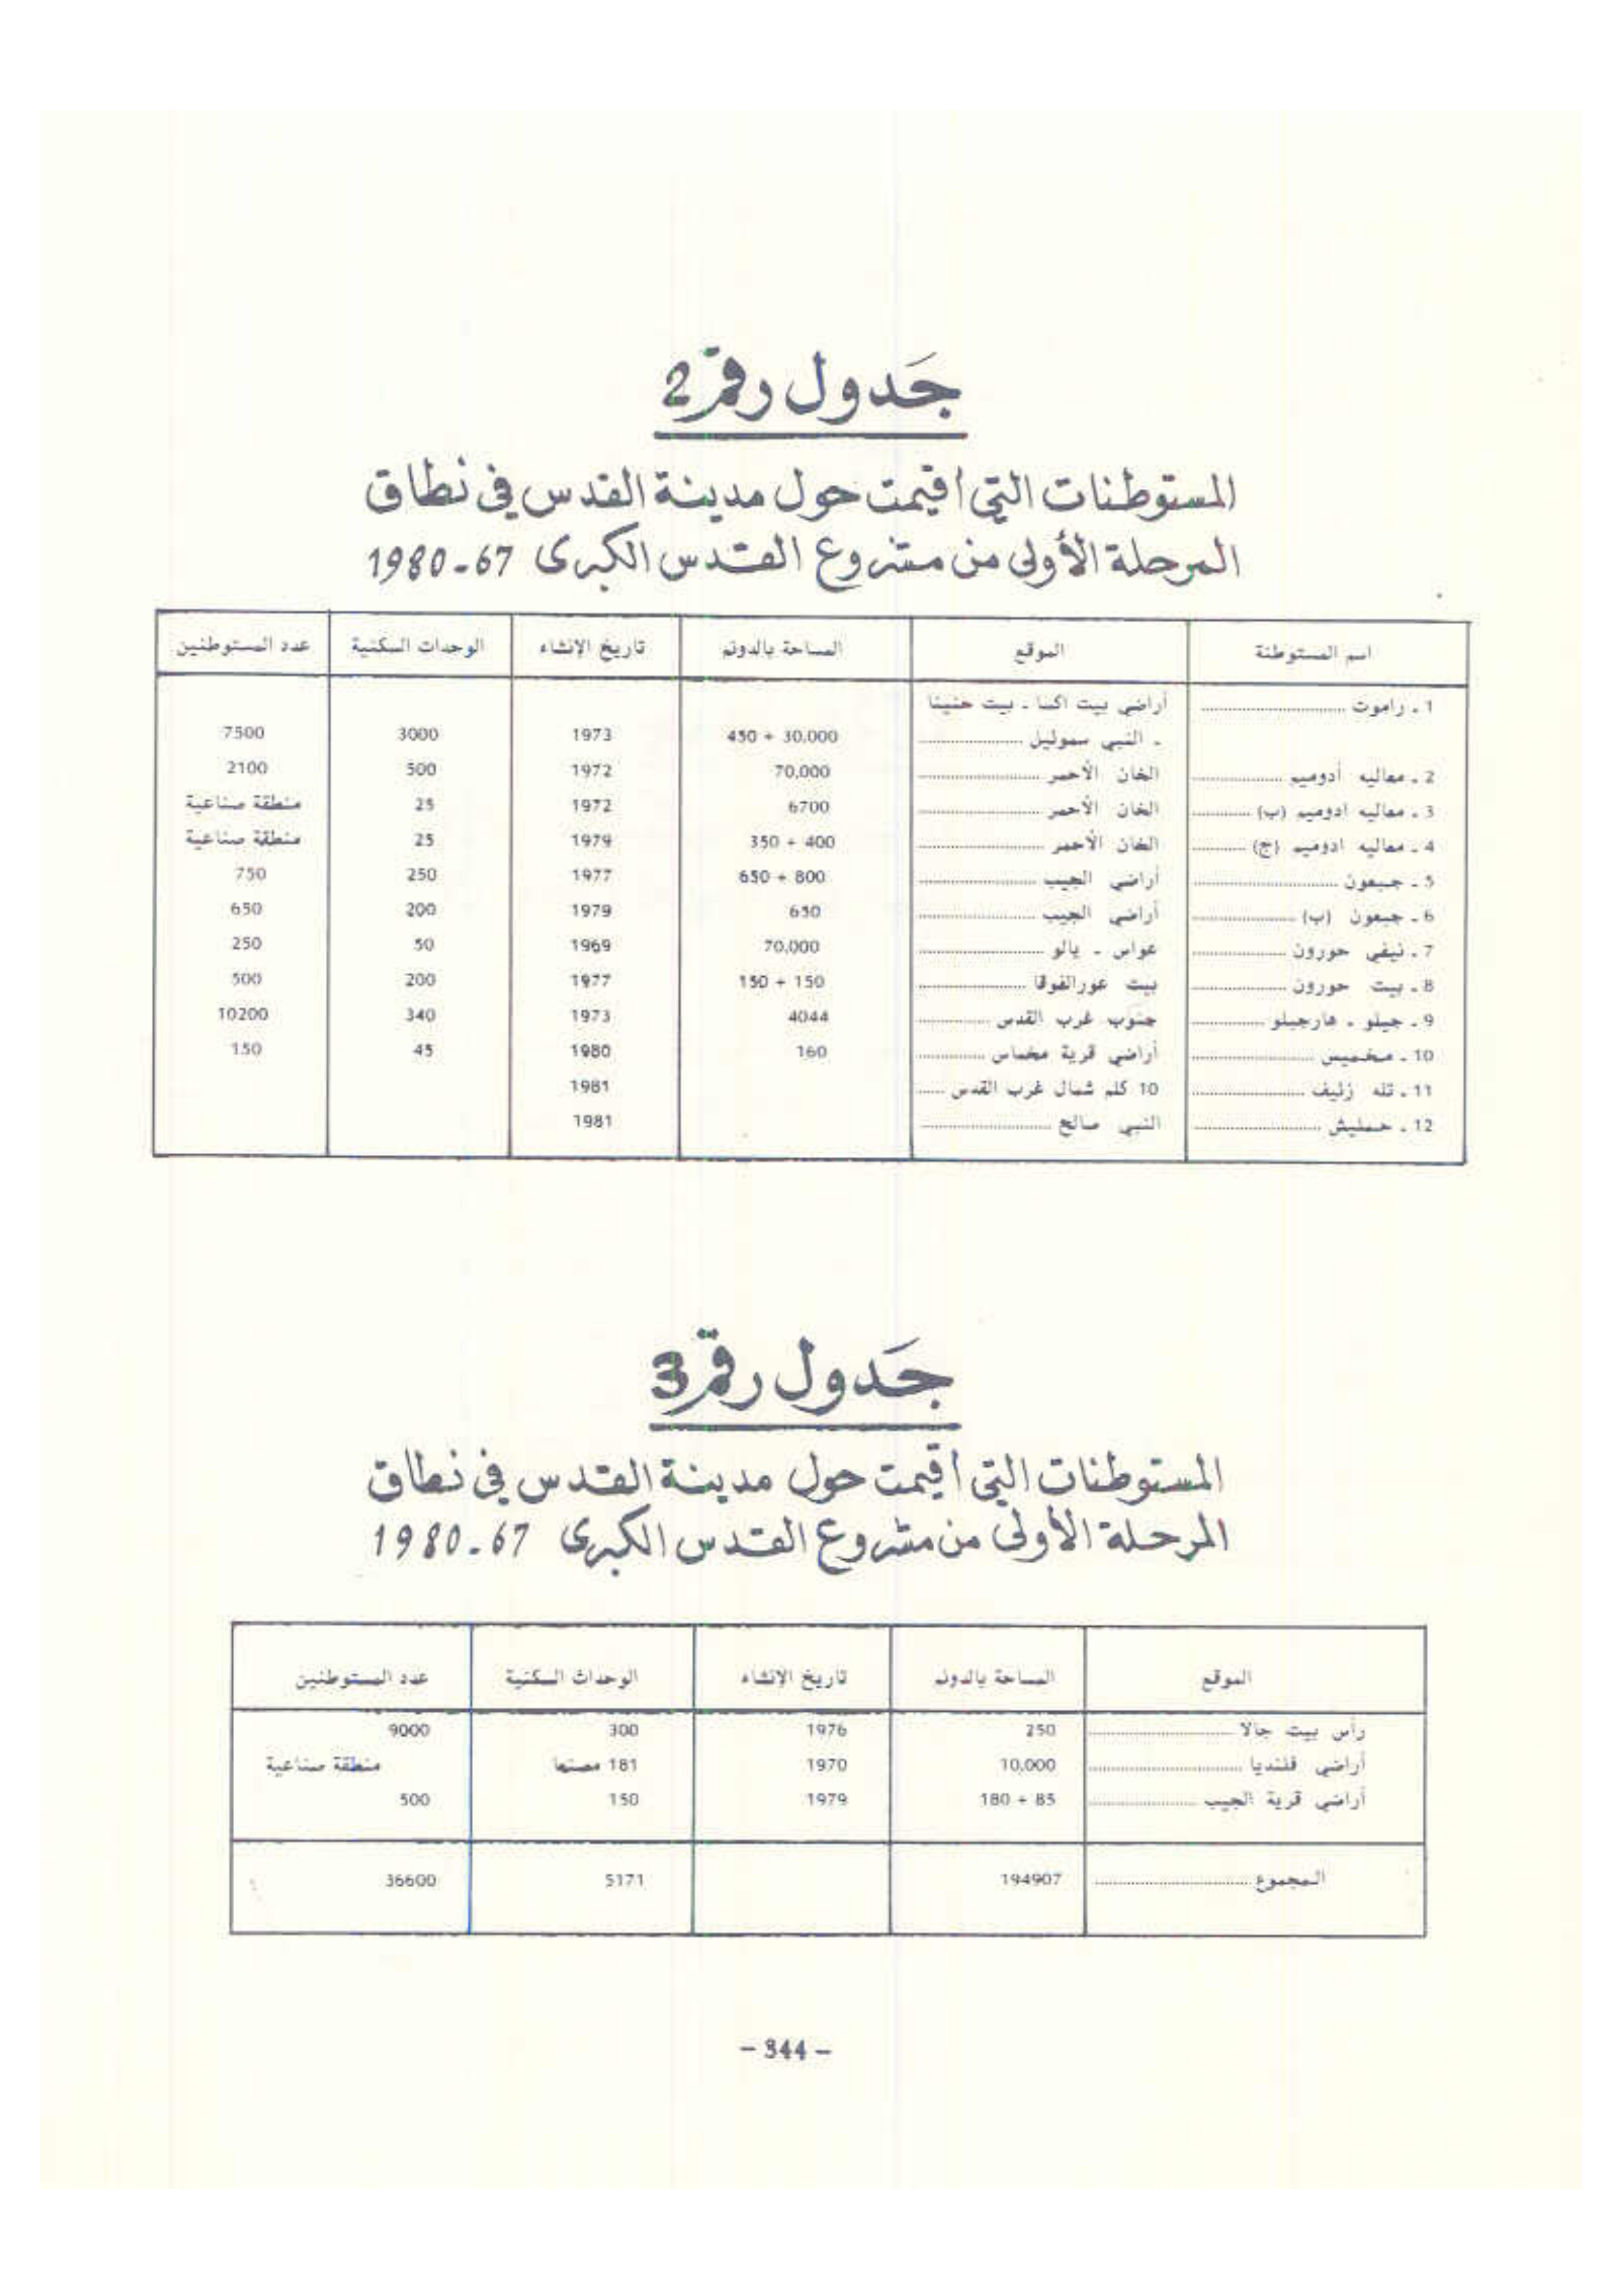 جَدول رقم 2
المستوطنات التي اقيمت حول مدينة القدس في نطاق
المرحلة الأولى من مشروع القدس الكبرى 67-1980
اسم المستوطنة الموقع المساحة بالدونم تاريخ الإنشاء الوحدات السكنية عدد المستوطنين
1 ـ راموت ........ أراضي بيت اكسا ـ بيت حنينا
ـ النبي سموئيل ........ 30,000 + 450 1973 3000 7500
2 ـ معاليه أدوميم ........ الخان الأحمر ........ 70,000 1972 500 2100
3 ـ معاليه ادوميم (ب) ........ الخان الأحمر ........ 6700 1972 25 منطقة صناعية
4 ـ معاليه ادوميم (ج) ........ الخان الأحمر ........ 400 + 350 1979 25 منطقة صناعية
5 ـ جبعون ........ أراضي الجيب ........ 800 + 650 1977 250 750
6 ـ جبعون (ب) ........ أراضي الجيب ........ 650 1979 200 650
7 ـ نيفي حورون ........ عواس ـ يالو ........ 70,000 1969 50 250
8 ـ بيت حورون ........ بيت عورالفوقا ........ 150 + 150 1977 200 500
9 ـ جيلو ـ هارجيلو ........ جنوب غرب القدس ........ 4044 1973 340 10200
10 ـ مخميس ........ أراضي قرية مخماس ........ 160 1980 45 150
11 ـ تله زئيف ........ 10 كلم شمال غرب القدس ........ 1981
12 ـ حمليش ........ النبي صالح ........ 1981
جَدول رقم 3
المستوطنات التي اقيمت حول مدينة القدس في نطاق
المرحلة الأولى من مشروع القدس الكبرى 67-1980
الموقع المساحة بالدونم تاريخ الانشاء الوحدات السكنية عدد المستوطنين
رأس بيت جالا ........ 250 1976 300 9000
أراضي قلنديا ........ 10,000 1970 181 مصنعا منطقة صناعية
أراضي قرية الجيب ........ 85 + 180 1979 150 500
المجموع ........ 194907 5171 36600
- 344 -